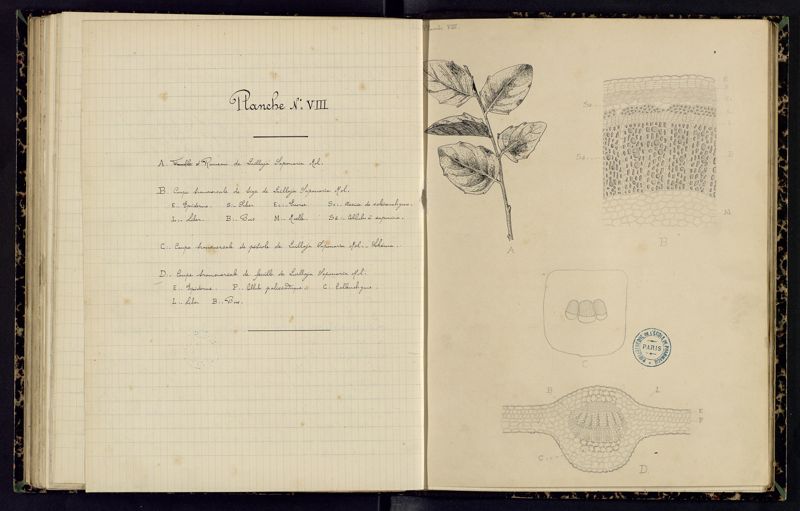 Planche N.º VIII
A. Rameau de Quillaja Saponaria Mol.
B. Coupe transversale de tige de Quillaja Saponaria Mol.
E. Épiderme. S. Liber E. Sc. Amas de sclérenchyme.
L. Liber. B. Bois M. Moelle. Sa. Cellules à saponine.
C. Coupe transversale de pétiole de Quillaja Saponaria Mol. Schéma.
D. Coupe transversale de feuille de Quillaja Saponaria Mol.
E. Épiderme. P. Cellules palissadiques. C. Collenchyme.
L. Liber B. Bois.
Planche VIII.
A
Sc.
Sa.
E
L
B
M
B
C
BIBLIOTHÈQUE DE L'ÉCOLE DE PHARMACIE
PARIS
B
L
E
P
C
D